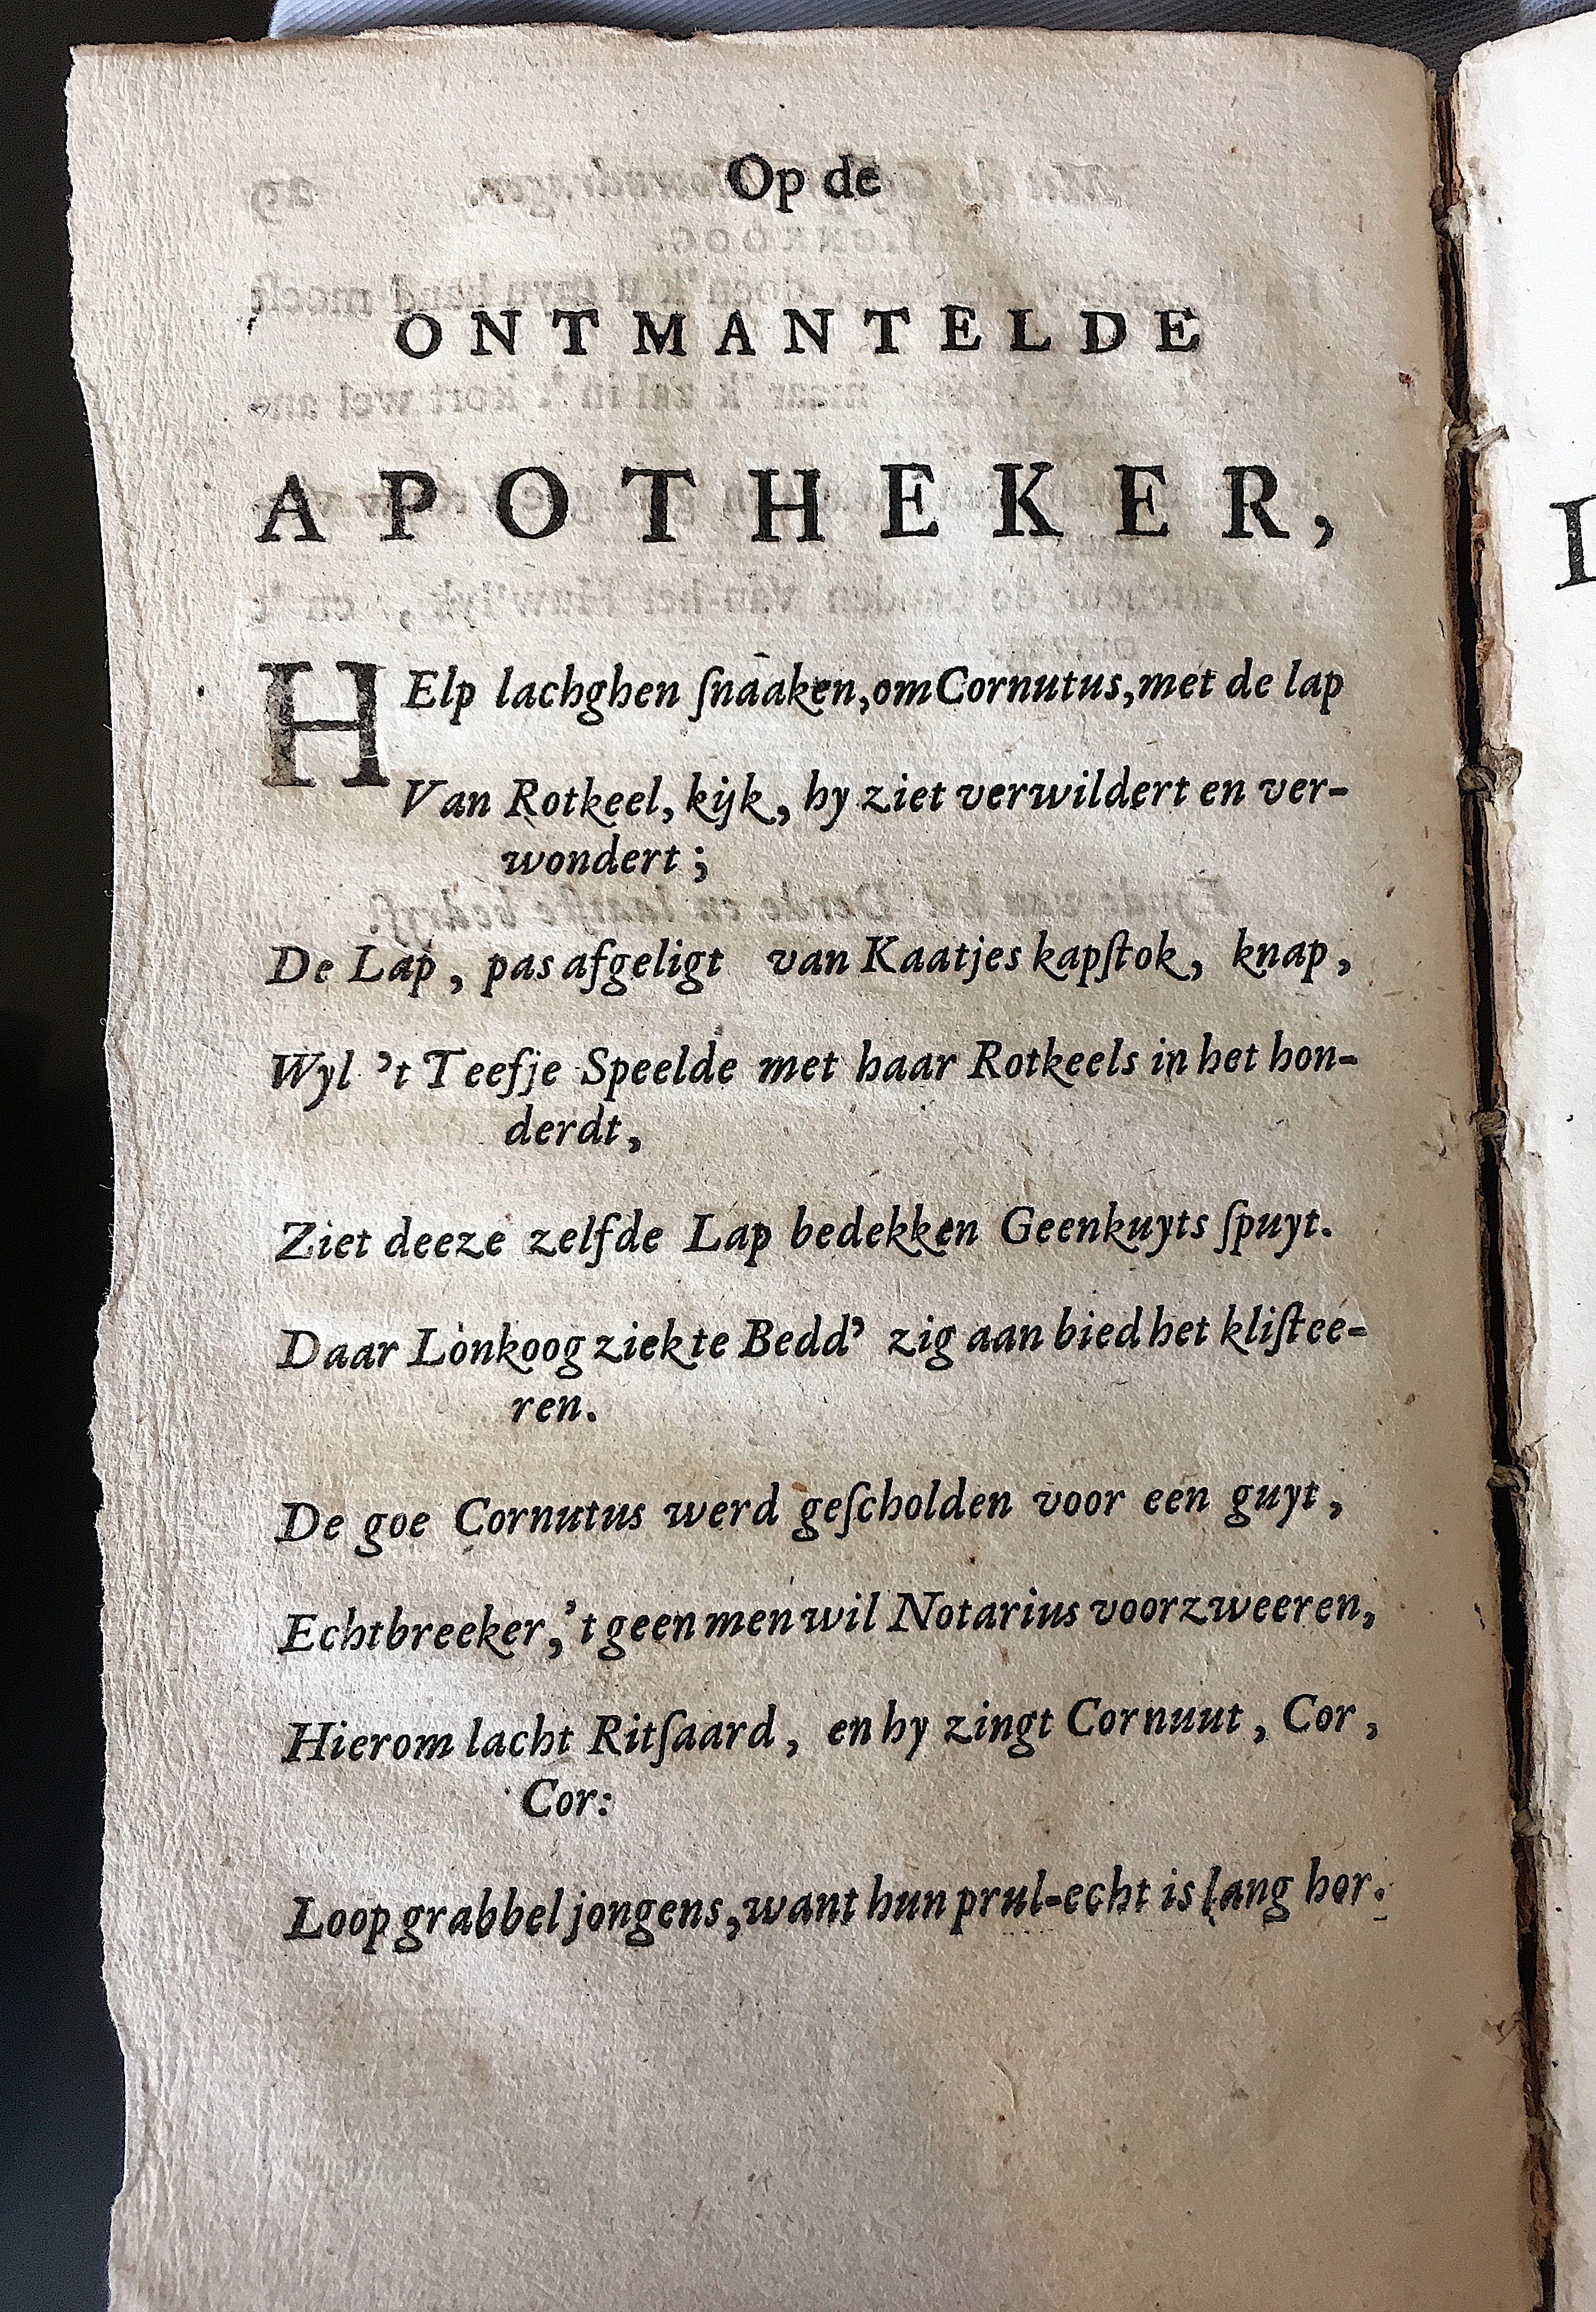 Op de
ONTMANTELDE
APOTHEKER,
HElp lachghen ſnaaken, om Cornutus, met de lap
Van Rotkeel, kijk, hy ziet verwildert en ver-
wondert;
De Lap, pas afgeligt van Kaatjes kapſtok, knap,
Wyl 't Teefje Speelde met haar Rotkeels in het hon-
derdt,
Ziet deeze zelfde Lap bedekken Geenkuyts ſpuyt.
Daar Lonkoog ziek te Bedd' zig aan bied het kliſtee-
ren.
De goe Cornutus werd geſcholden voor een guyt,
Echtbreeker, 't geen men wil Notarius voorzweeren,
Hierom lacht Ritſaard, en hy zingt Cornuut, Cor,
Cor:
Loop grabbel jongens, want hun prul-echt is lang hor.